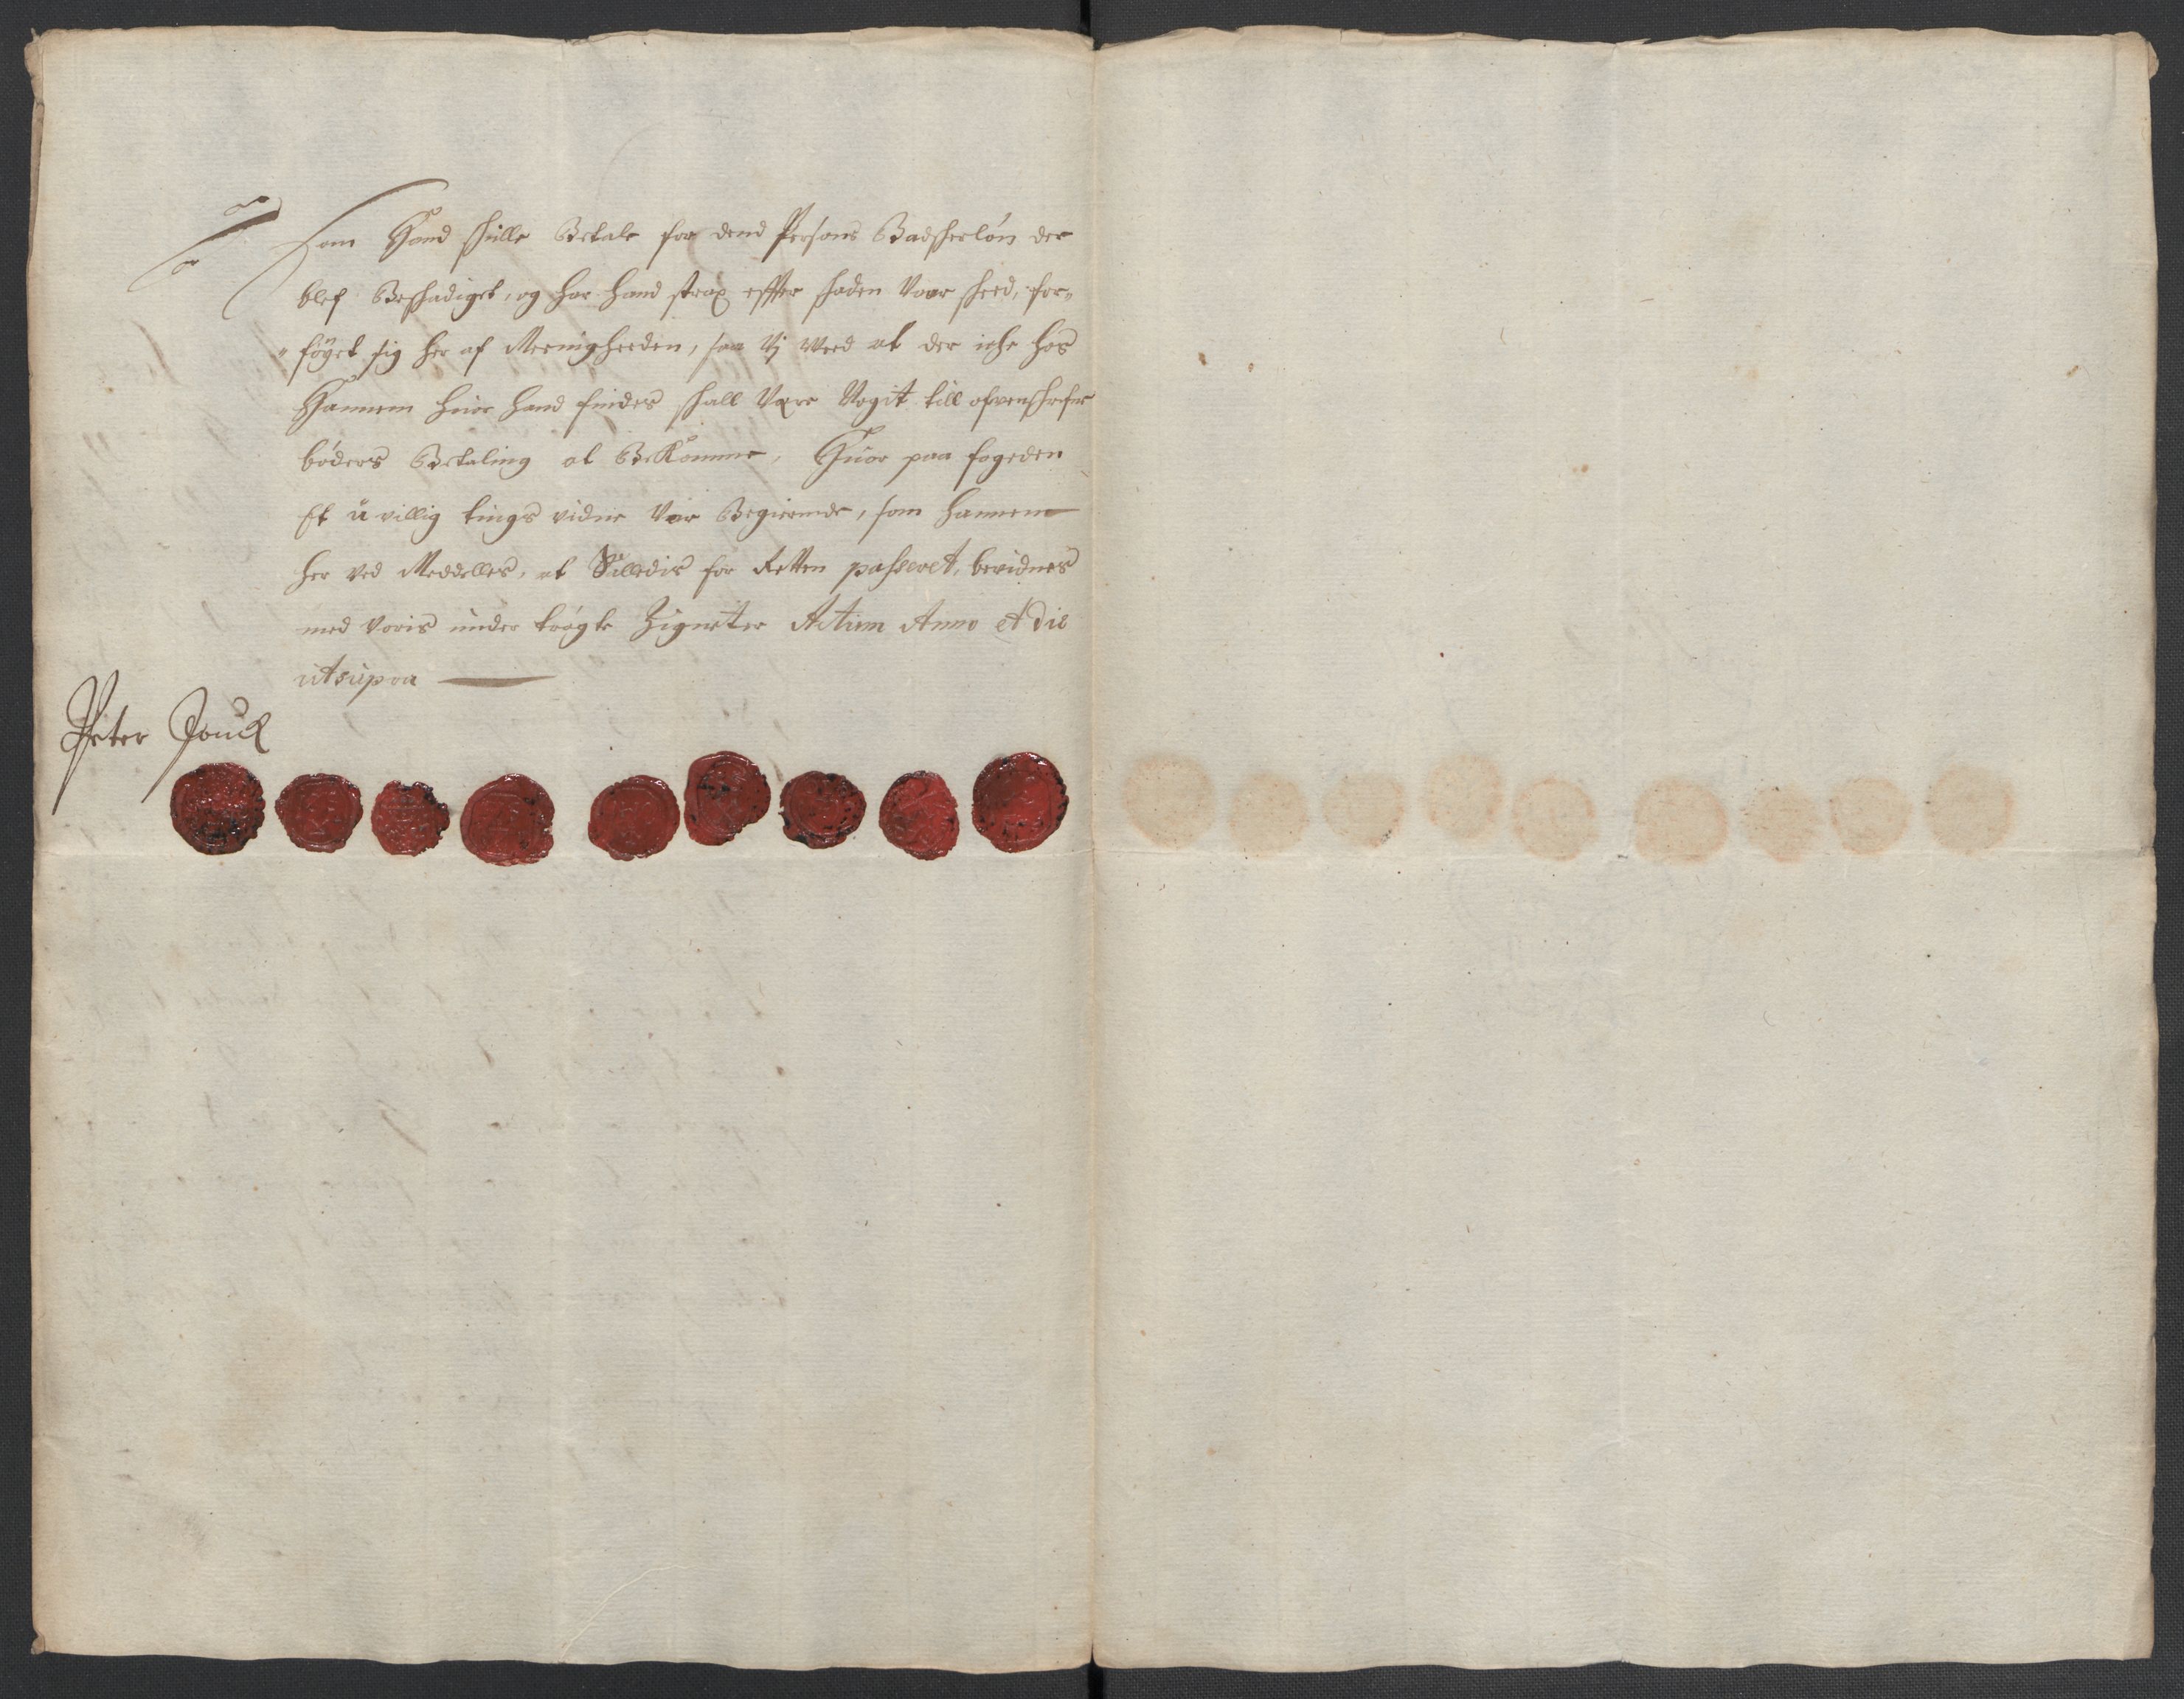 Som Hand skulle Betale for dend Persons Badskerløn der
blef Beskadiget, og har hand strax effter skaden Vaar skeed, for-
føyet sig her af Meenigheeden, saa Vj Veed at der iche hos
Hannem huor hand findes skall Være Noget till ofvenskrefne
bøders Betaling at BeKomme, Huor paa fogeden
Et uvillig tings vidne Var Begierende, som hannem
her ved Meddelles, at Saaledis for Retten passeret, bevidnes
med Voris under trøgte Zigneter Actum Anno et Die
utsupra
Peter